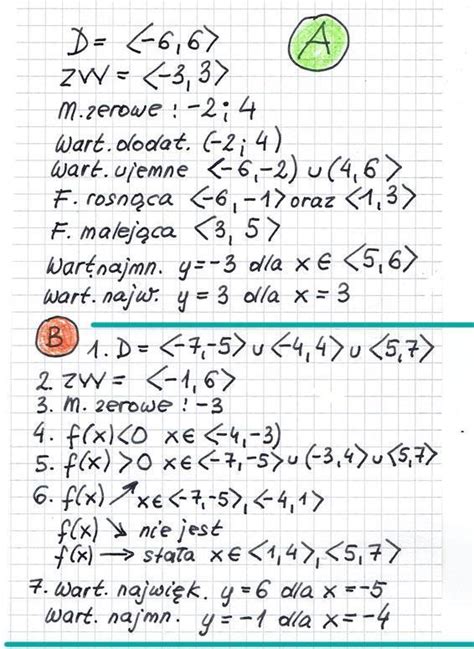 D = <-6,6>
A
ZW = <-3,3>
M. zerowe : -2 ; 4
Wart. dodat. (-2 ; 4)
Wart. ujemne <-6,-2) ∪ (4,6>
F. rosnąca <-6,-1> oraz <1,3>
F. malejąca <3, 5>
Wart. najmn. y=-3 dla x∈ <5,6>
wart. najw. y = 3 dla x = 3
B
1. D = <-7,-5> ∪ <-4,4> ∪ <5,7>
2. ZW = <-1,6>
3. M. zerowe : -3
4. f(x)<0 x∈ <-4,-3)
5. f(x) >0 x∈ <-7,-5> ∪ (-3,4> ∪ <5,7>
6. f(x) ↗ x∈ <-7,-5>, <-4,1>
f(x) ↘ nie jest
f(x) → stała x∈ <1,4>, <5,7>
7. Wart. najwięk. y = 6 dla x = -5
Wart. najmn. y = -1 dla x = -4